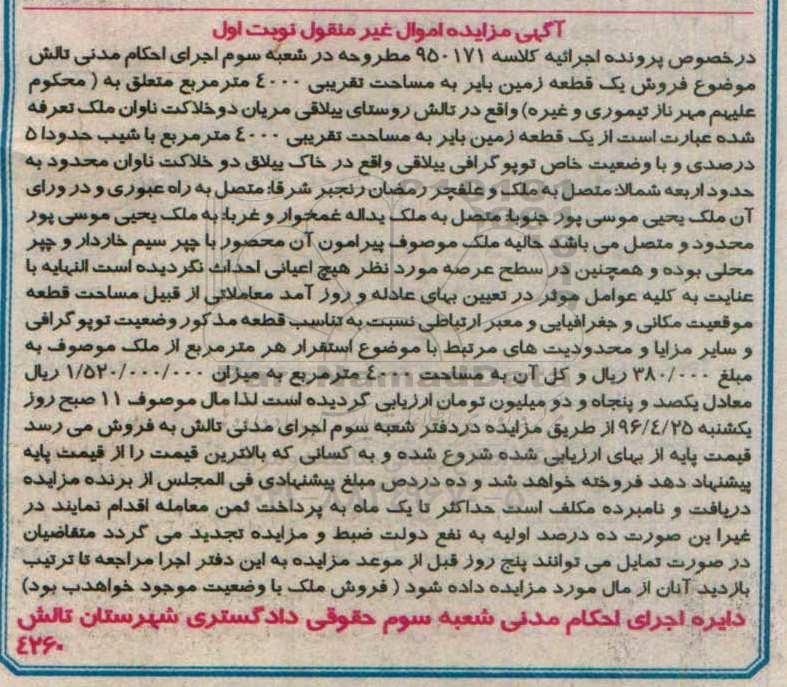 آگهی مزایده اموال غیر منقول نوبت اول
درخصوص پرونده اجرائیه کلاسه ۹۵۰۱۷۱ مطروحه در شعبه سوم اجرای احکام مدنی تالش
موضوع فروش یک قطعه زمین بایر به مساحت تقریبی ۴۰۰۰ مترمربع متعلق به ( محکوم
علیهم مهرناز تیموری و غیره) واقع در تالش روستای ییلاقی مریان دوخلاکت ناوان ملک تعرفه
شده عبارت است از یک قطعه زمین بایر به مساحت تقریبی ۴۰۰۰ مترمربع با شیب حدودا ۵
درصدی و با وضعیت خاص توپوگرافی ییلاقی واقع در خاک ییلاق دو خلاکت ناوان محدود به
حدود اربعه شمالا: متصل به ملک و علفچر رمضان رنجبر شرقا: متصل به راه عبوری و در ورای
آن ملک یحیی موسی پور جنوبا: متصل به ملک یداله غمخوار و غربا: به ملک یحیی موسی پور
محدود و متصل می باشد حالیه ملک موصوف پیرامون آن محصور با چپر سیم خاردار و چپر
محلی بوده و همچنین در سطح عرصه مورد نظر هیچ اعیانی احداث نگردیده است النهایه با
عنایت به کلیه عوامل موثر در تعیین بهای عادله و روز آمد معاملاتی از قبیل مساحت قطعه
موقعیت مکانی و جغرافیایی و معبر ارتباطی نسبت به تناسب قطعه مذکور وضعیت توپوگرافی
و سایر مزایا و محدودیت های مرتبط با موضوع استقرار هر مترمربع از ملک موصوف به
مبلغ ۳۸۰/۰۰۰ ریال و کل آن به مساحت ۴۰۰۰ مترمربع به میزان ۱/۵۲۰/۰۰۰/۰۰۰ ریال
معادل یکصد و پنجاه و دو میلیون تومان ارزیابی گردیده است لذا مال موصوف ۱۱ صبح روز
یکشنبه ۹۶/۴/۲۵ از طریق مزایده دردفتر شعبه سوم اجرای مدنی تالش به فروش می رسد
قیمت پایه از بهای ارزیابی شده شروع شده و به کسانی که بالاترین قیمت را از قیمت پایه
پیشنهاد دهد فروخته خواهد شد و ده دردص مبلغ پیشنهادی فی المجلس از برنده مزایده
دریافت و نامبرده مکلف است حداکثر تا یک ماه به پرداخت ثمن معامله اقدام نمایند در
غیرا ین صورت ده درصد اولیه به نفع دولت ضبط و مزایده تجدید می گردد متقاضیان
در صورت تمایل می توانند پنج روز قبل از موعد مزایده به این دفتر اجرا مراجعه تا ترتیب
بازدید آنان از مال مورد مزایده داده شود ( فروش ملک با وضعیت موجود خواهدب بود)
دایره اجرای احکام مدنی شعبه سوم حقوقی دادگستری شهرستان تالش
۴۲۶۰